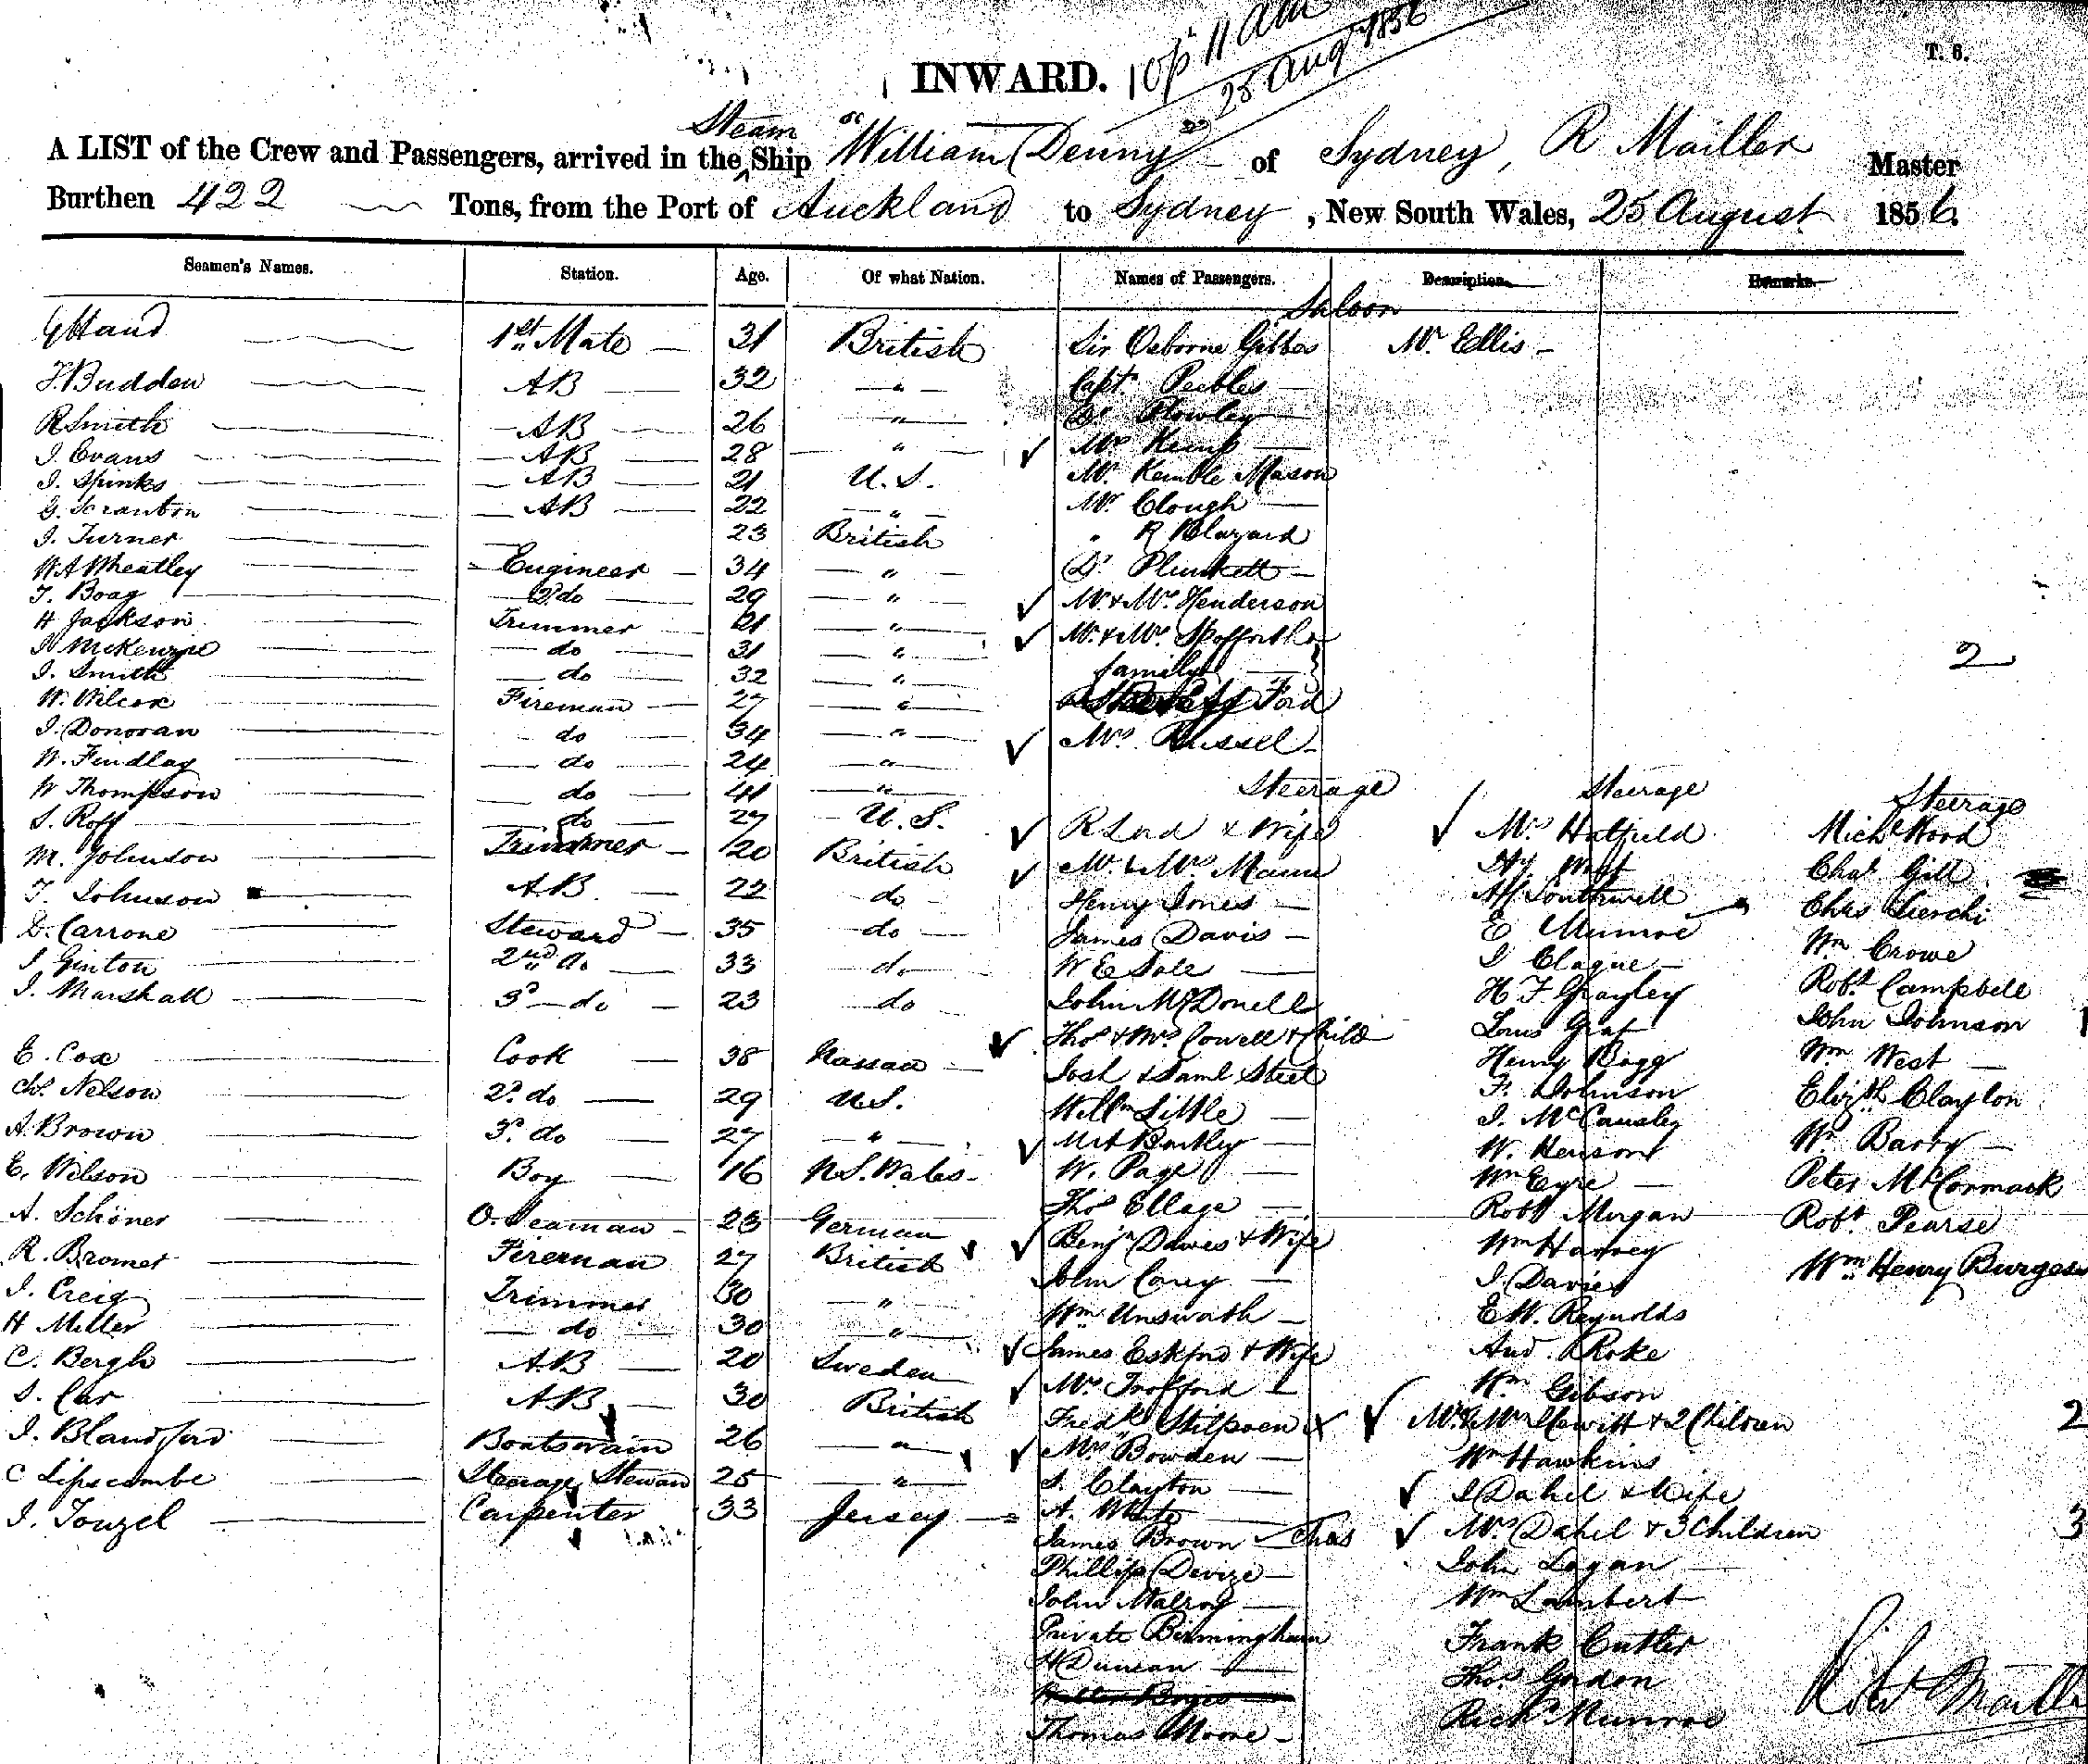 10 p 11 am
25 Aug 1856
T. 6.
INWARD.
A LIST of the Crew and Passengers, arrived in the Steam Ship "William Denny" of Sydney, R Mailler Master
Burthen 422 Tons, from the Port of Auckland to Sydney, New South Wales, 25 August 1856.
Seamen's Names. Station. Age. Of what Nation. Names of Passengers. Description. Remarks.
G Hand 1st Mate 31 British
F. Budden AB 32 "
R Smith AB 26 "
J. Evans AB 28 "
J. Spinks AB 21 U.S.
G. Scranton AB 22 "
J. Turner 23 British
W A Wheatley Engineer 34 "
T. Boag 2d do 29 "
H Jackson Trimmer 21 "
McKenzie do 31 "
J. Smith do 32 "
W. Wilcox Fireman 27 "
J. Donovan do 34 "
W. Findlay do 24 "
W Thompson do 41 "
S. Roff do 27 U.S.
M. Johnson Trimmer 20 British
T. Johnson AB 22 do
D. Carrone Steward 35 do
J Ginton 2nd do 33 do
J. Marshall 3d do 23 do
E. Cox Cook 38 Nassau
Nelson 2d do 29 U.S.
A. Brown 3d do 27 "
E. Wilson Boy 16 N.S. Wales
A. Schöner O. Seaman 23 German
R. Bromer Fireman 27 British
J. Creig Trimmer 30 "
H Miller do 30 "
C. Bergh AB 20 Sweden
S. Car AB 30 British
J. Blandford Boatswain 26 "
C Lipscombe Steerage Steward 25 "
J. Touzel Carpenter 33 Jersey
Saloon
Sir Osborne Gibbes
Capt. Peebles
Dr Rowley
Mrs Kemp
Mr. Kemble Mason
Mr Clough
" R Blazard
Dr. Plunkett
Mr. & Mrs. Henderson
Mr. & Mrs. Spofforth &
family
Ford
Mrs. Russel
Mr. Ellis
2
Steerage
R Lud & Wife
Mr. & Mrs. Mann
Henry Jones
James Davis
W E Sale
John McDonell
Thos & Mrs Cowell & Child
Josh & Saml Steel
Willm Little
Mrs Bartley
W. Page
Thos Ellage
Benjn Dawes & Wife
John Corey
Wm Unswath
James Eskford & Wife
Mrs Trofford
Fredk
Mrs Bowden
S. Clayton
A. White
James Brown
Phillip Devize
John Malroy
Private Birmingham
H Duncan
Thomas Moore
Steerage
Mrs Hatfield
Southwell
E Munroe
J Clague
H F Grayley
Louis Graf
Henry Bagg
F. Johnson
J. McCausley
W. Henson
Wm Eyre
Robt Morgan
Wm Harvey
J Davies
E W. Reynolds
And. Roke
Wm Gibson
Mr. & Mrs Hewitt & 2 Children 2
Wm Hawkins
J Dahel & Wife
Mrs Dahel & 3 Children 3
John Logan
Wm Lambert
Frank Cutler
Thos Gordon
Richd Munroe
Steerage
Michl Wood
Chas Gill
Chas
Wm Crowe
Robt Campbell
John Johnson 1
Wm West
Elizth Clayton
Wm Barry
Peter McCormack
Robt Pearse
Wm Henry Burgess
Robt Mailler